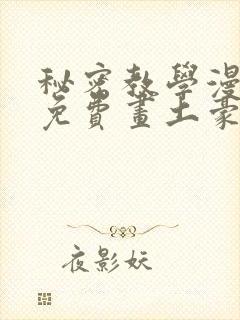 秘密教學漫
免費畫土豪
夜影妖